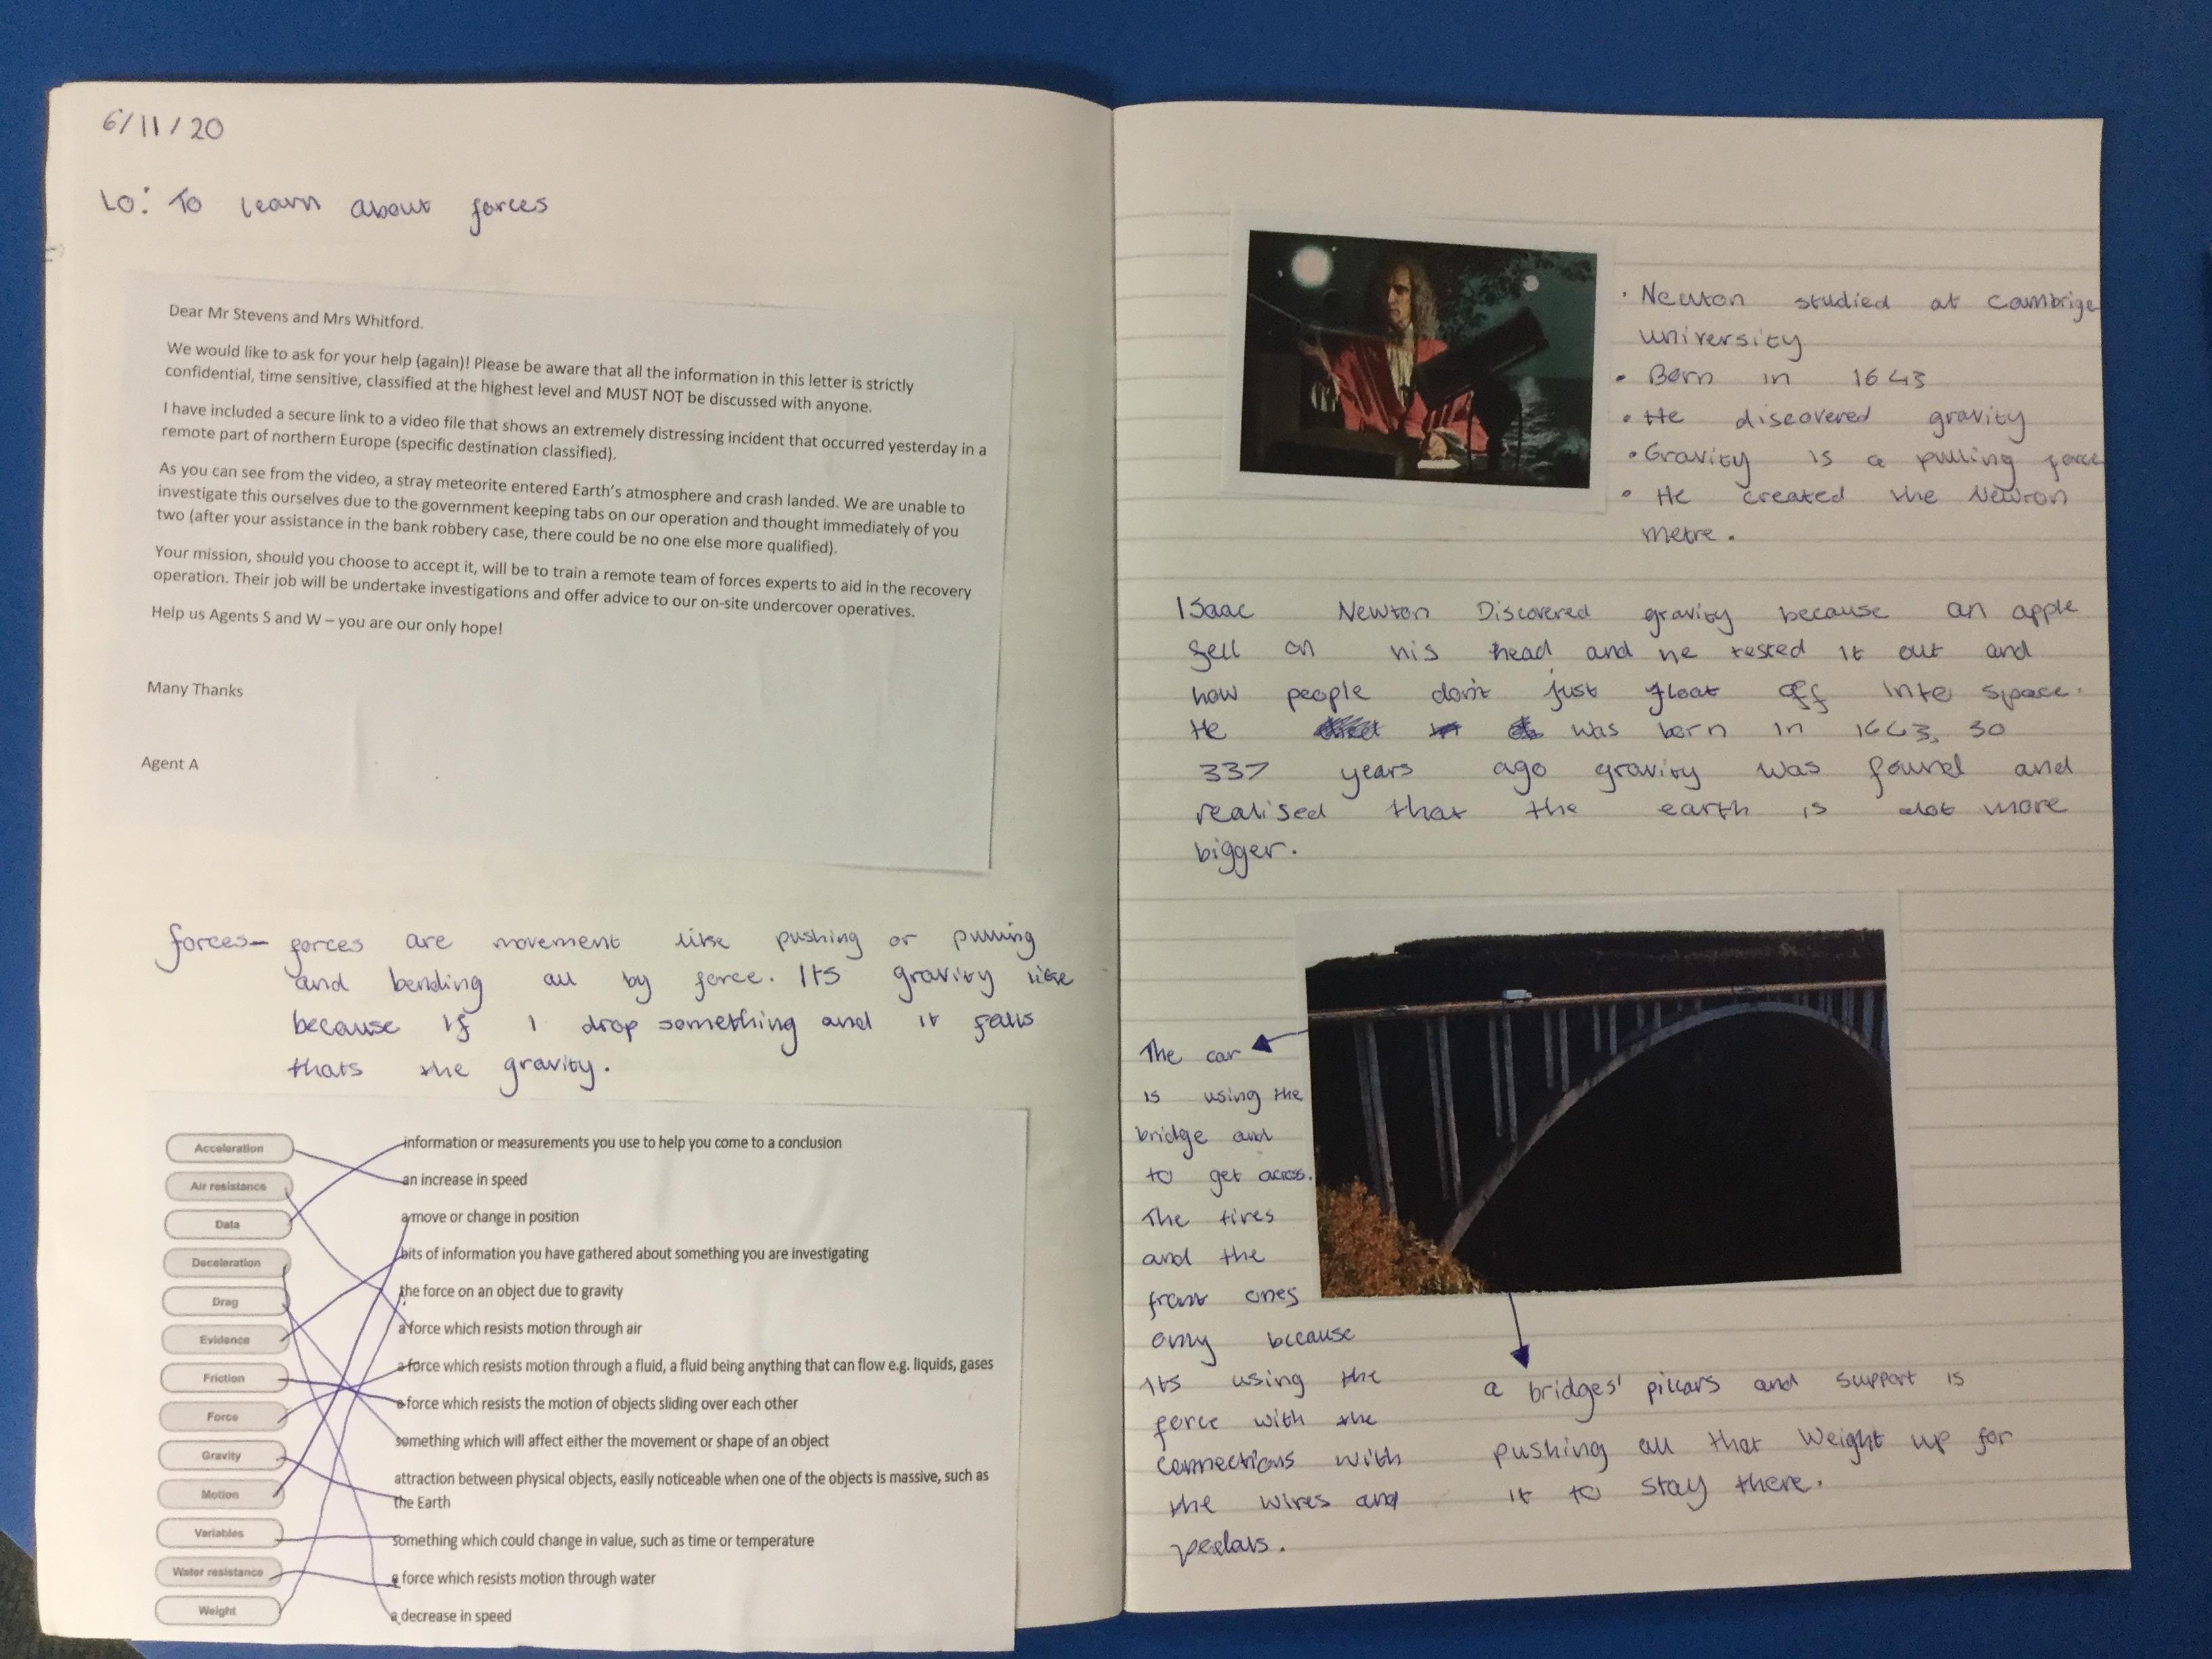 6/11/20
LO: To learn about forces
Dear Mr Stevens and Mrs Whitford.
We would like to ask for your help (again)! Please be aware that all the information in this letter is strictly
confidential, time sensitive, classified at the highest level and MUST NOT be discussed with anyone.
I have included a secure link to a video file that shows an extremely distressing incident that occurred yesterday in a
remote part of northern Europe (specific destination classified).
As you can see from the video, a stray meteorite entered Earth's atmosphere and crash landed. We are unable to
investigate this ourselves due to the government keeping tabs on our operation and thought immediately of you
two (after your assistance in the bank robbery case, there could be no one else more qualified).
Your mission, should you choose to accept it, will be to train a remote team of forces experts to aid in the recovery
operation. Their job will be undertake investigations and offer advice to our on-site undercover operatives.
Help us Agents S and W – you are our only hope!
Many Thanks
Agent A
forces- forces are movement like pushing or pulling
and bending all by force. Its gravity like
because if I drop something and it falls
thats the gravity.
Acceleration
Air resistance
Data
Deceleration
Drag
Evidence
Friction
Force
Gravity
Motion
Variables
Water resistance
Weight
information or measurements you use to help you come to a conclusion
an increase in speed
a move or change in position
bits of information you have gathered about something you are investigating
the force on an object due to gravity
a force which resists motion through air
a force which resists motion through a fluid, a fluid being anything that can flow e.g. liquids, gases
a force which resists the motion of objects sliding over each other
something which will affect either the movement or shape of an object
attraction between physical objects, easily noticeable when one of the objects is massive, such as
the Earth
something which could change in value, such as time or temperature
a force which resists motion through water
a decrease in speed
• Newton studied at Cambrige
university
• Born in 1643
• He discovered gravity
• Gravity is a pulling force
• He created the Newton
metre.
Isaac Newton Discovered gravity because an apple
fell on his head and he tested it out and
how people don't just float off into space.
He was born in 1643, 30
337 years ago gravity was found and
realised that the earth is alot more
bigger.
The car
is using the
bridge and
to get across.
The tires
and the
front ones
only because
Its using the
force with the
connections with
the wires and
pedals.
a bridges' pillars and support is
pushing all that weight up for
it to stay there.